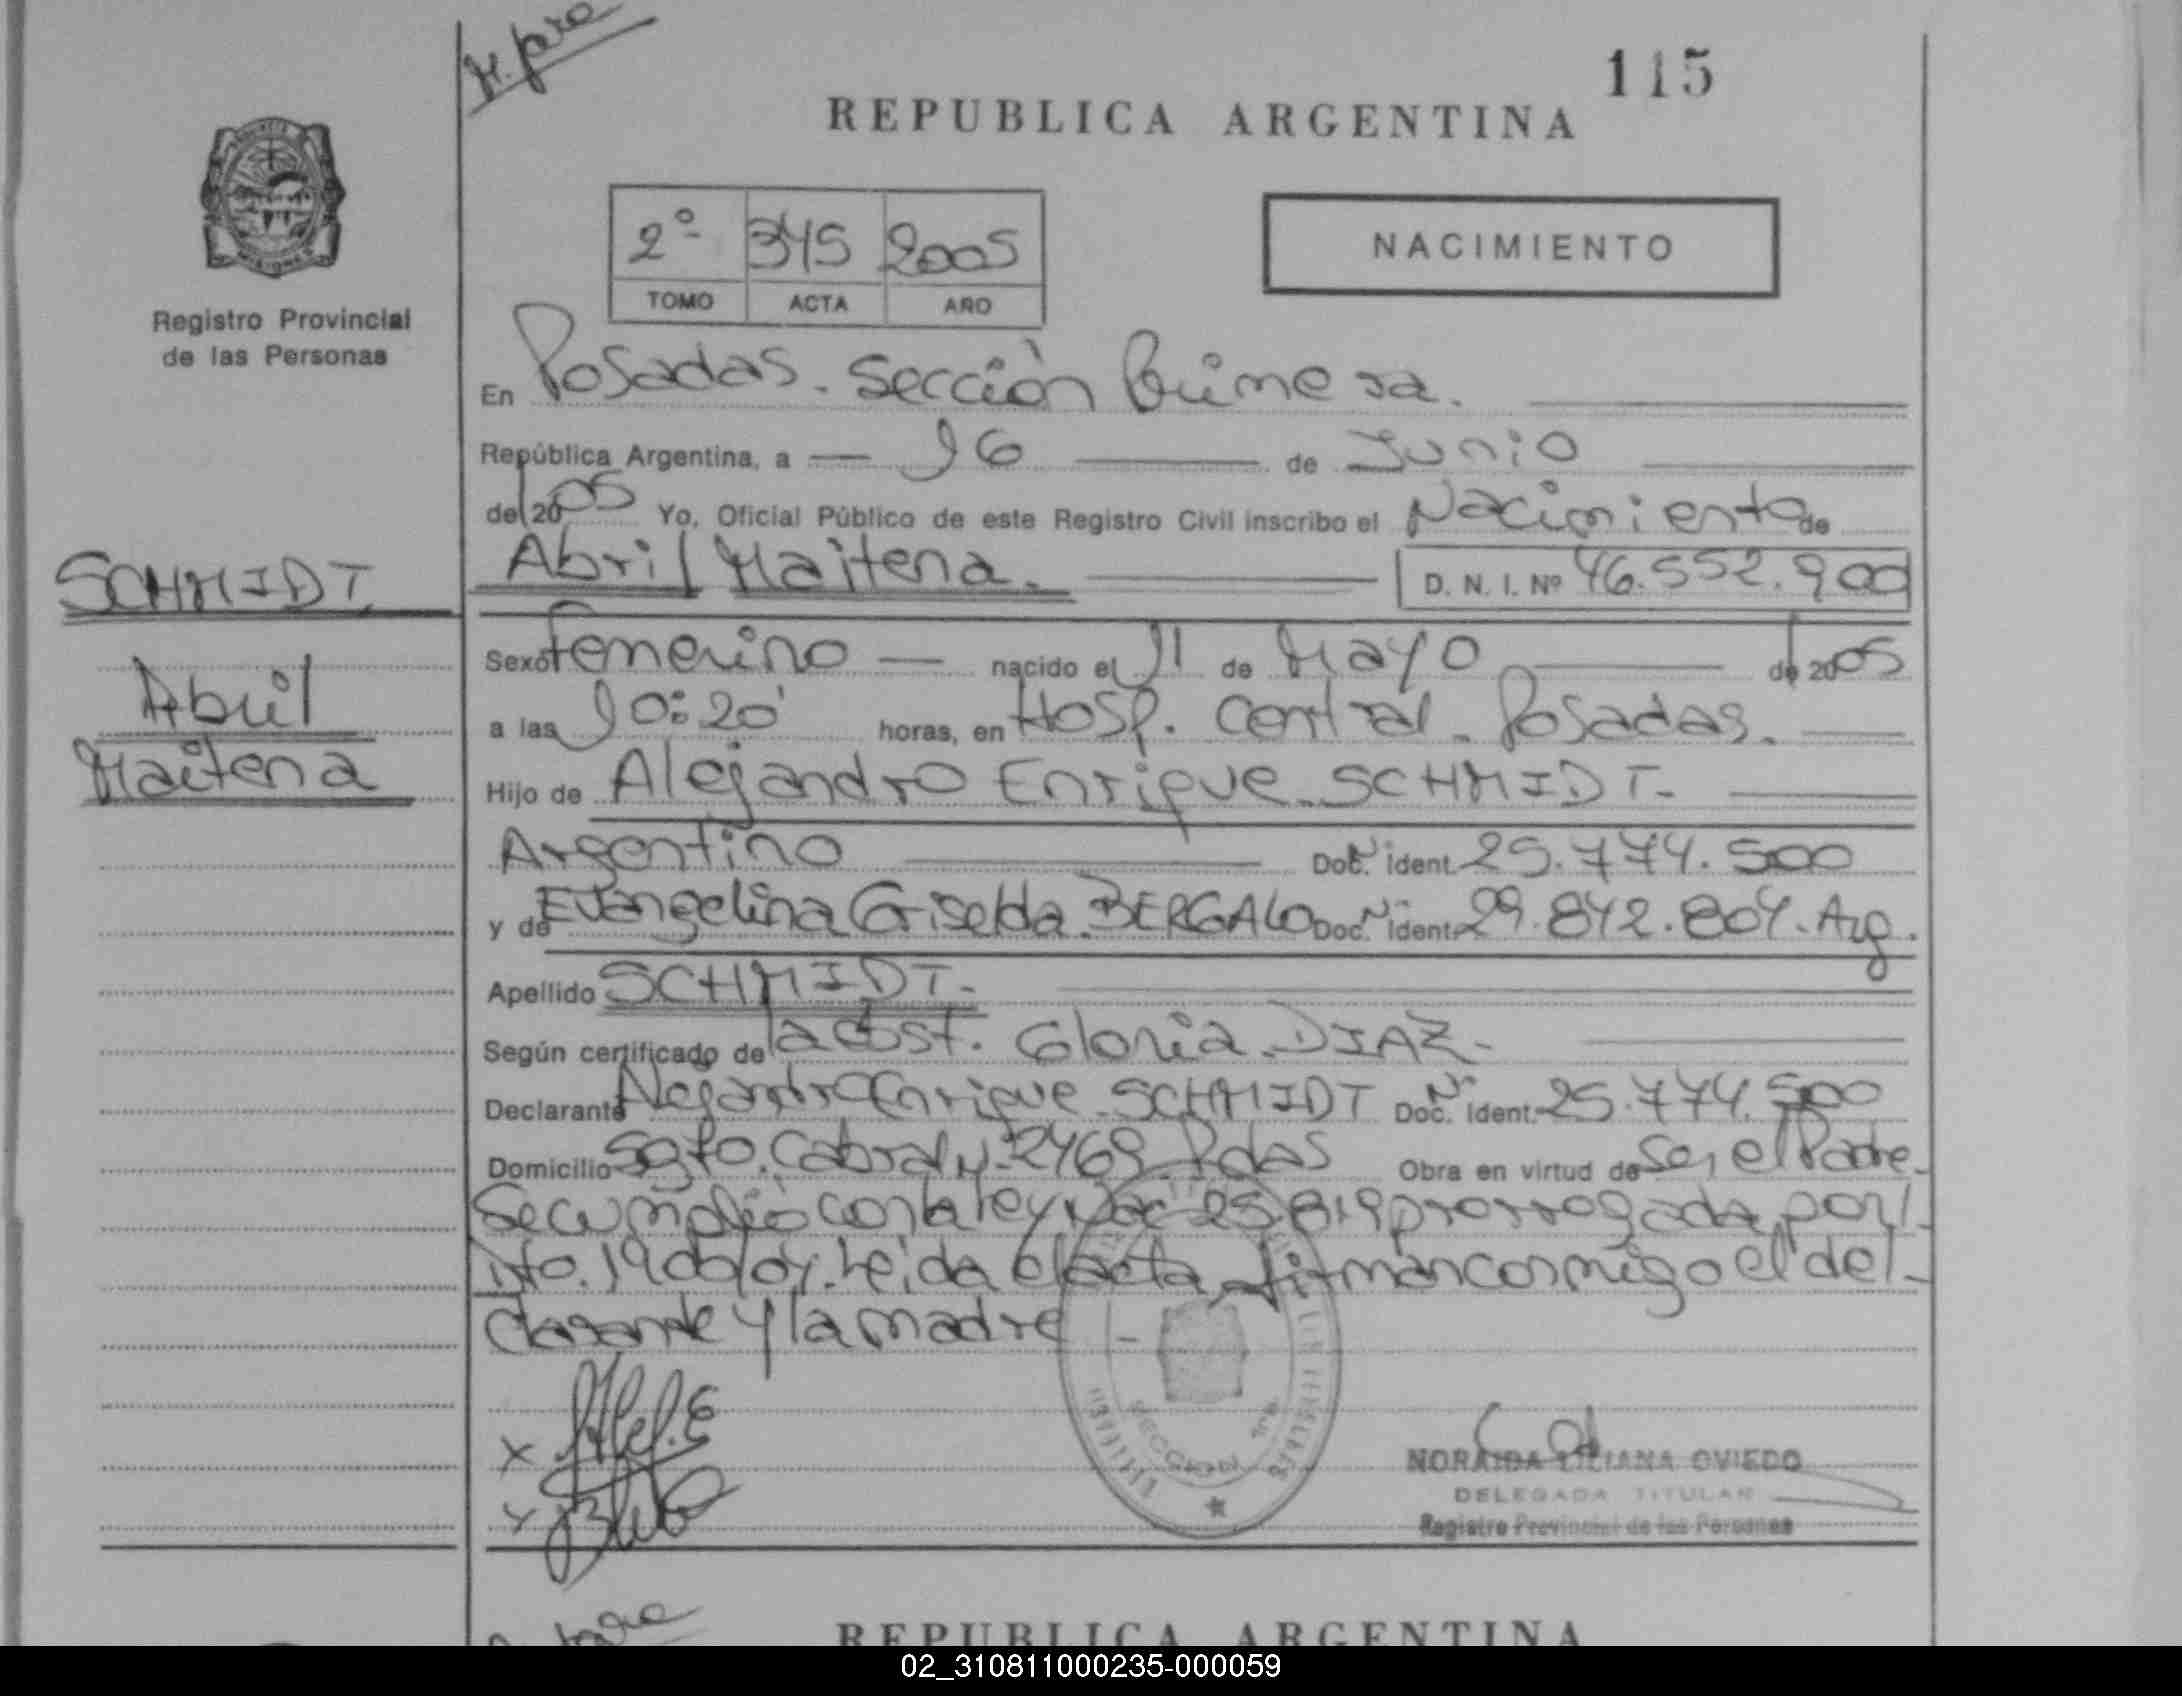 115
REPUBLICA ARGENTINA
2º 345 2005
TOMO ACTA AÑO
NACIMIENTO
Registro Provincial
de las Personas
En Posadas. Sección Primera.
República Argentina, a 16 de Junio
del 2005 Yo, Oficial Público de este Registro Civil inscribo el Nacimiento de
SCHMIDT
Abril Maitena. D. N. I. Nº 46.552.900
Abril
Maitena
Sexo Femenino nacido el 11 de Mayo de 2005
a las 10:20 horas, en Hosp. Central. Posadas.
Hijo de Alejandro Enrique SCHMIDT.
Argentino Doc. ident. 25.774.500
y de Evangelina Griselda BERGALO Doc. ident. 29.842.804. Arg.
Apellido SCHMIDT.
Según certificado de la obst. Gloria DIAZ.
Declarante Alejandro Enrique SCHMIDT Doc. ident. 25.774.500
Domicilio Sgto. Cabral Nº 2469 Pdas Obra en virtud de Ser el Padre.
Se cumplió con la ley Nac 25.819 prorrogada por
Dto. 1900/04. Leida el acta firman conmigo el de
clarante y la madre
SECCION 1ra
NORAIDA LILIANA OVIEDO
DELEGADA TITULAR
Registro Provincial de las Personas
REPUBLICA ARGENTINA
02_310811000235-000059